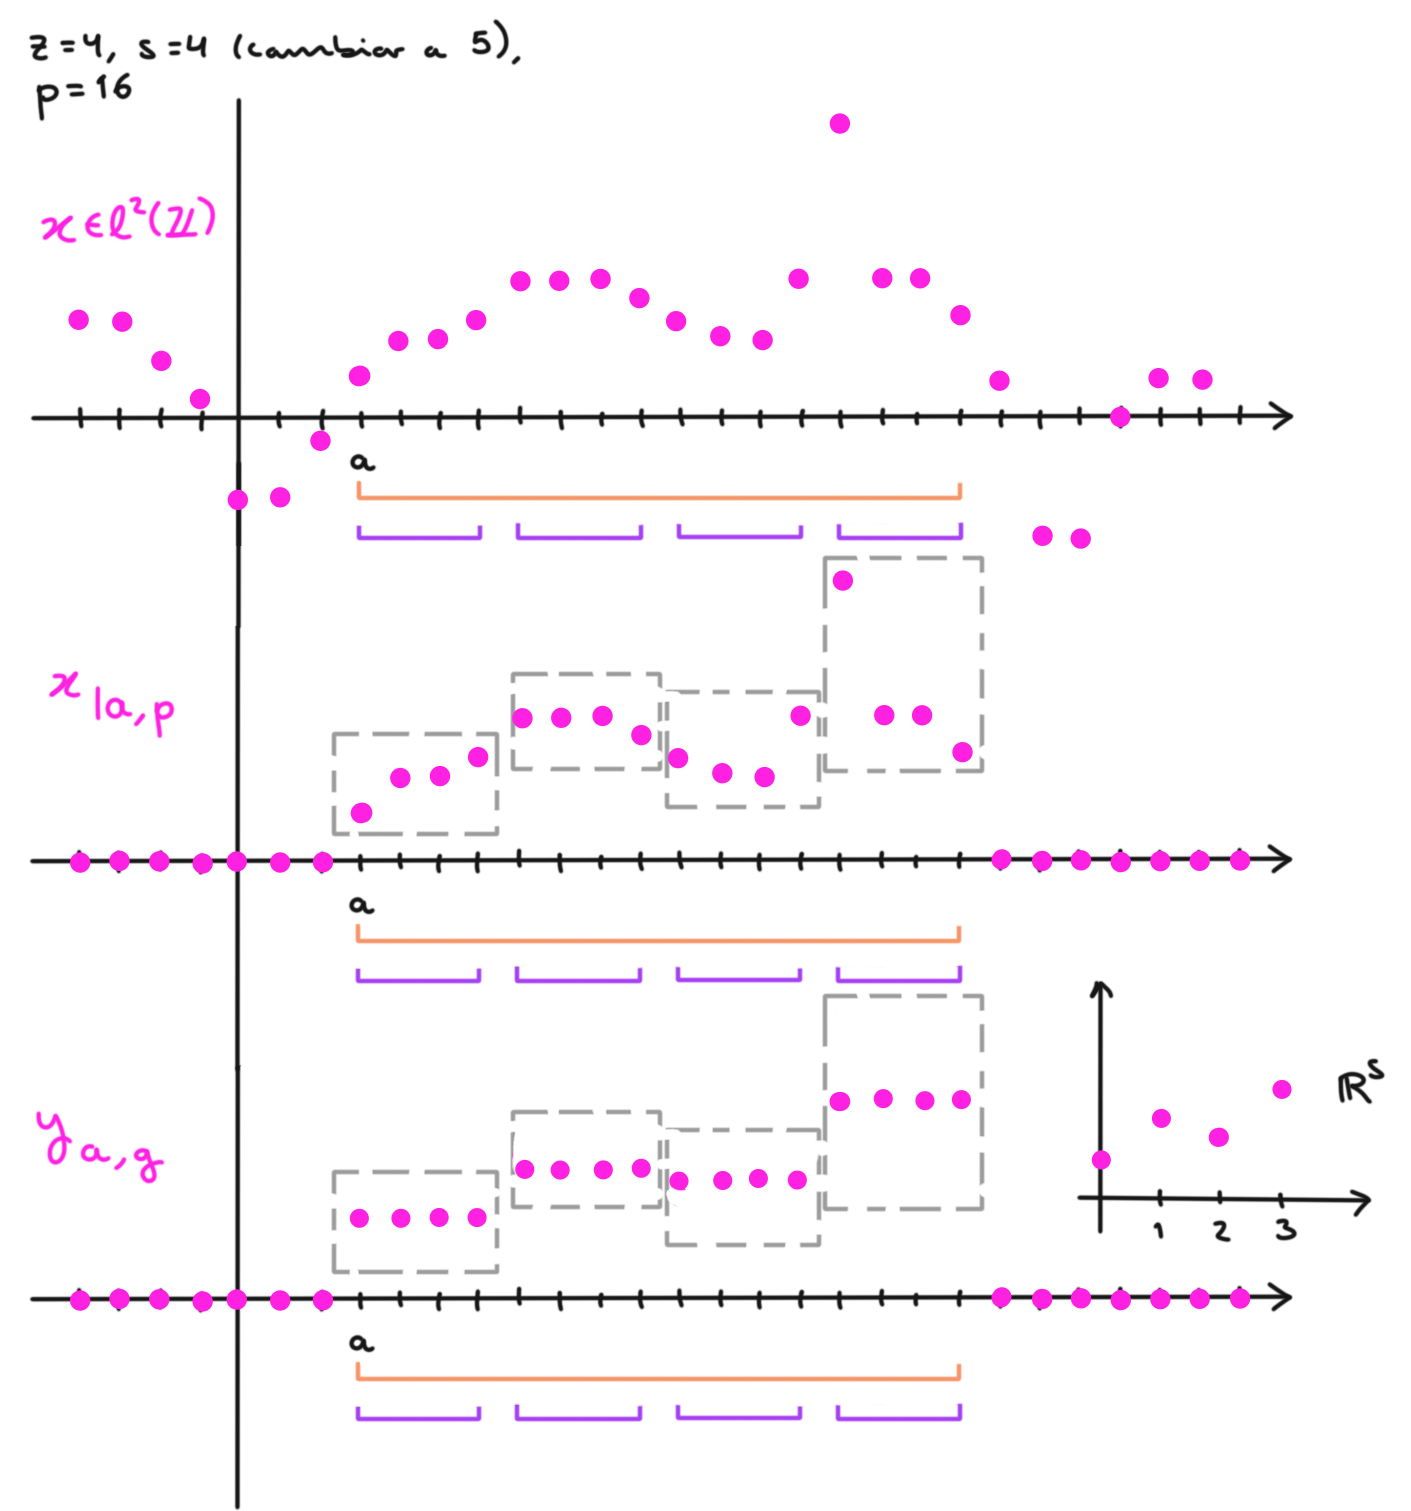 z=4, s=4 (cambiar a 5),
p=16
x∈ℓ²(ℤ)
a
x|a,p
a
ℝˢ
y a,g
1 2 3
a